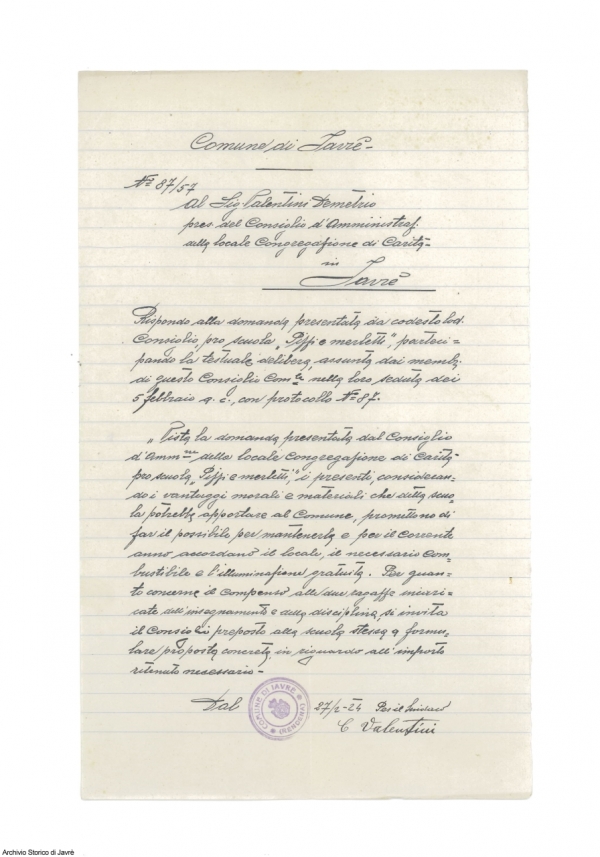 Comune di Javrè-
Nº 87/57
Al Sig Valentini Demetrio
pres. del Consiglio d'Amministraz.
alla locale Congregazione di Carità-
in
Javrè
Rispondo alla domanda presentata da codesto lod.
Consiglio, pro scuola „Pizzi e merletti", parteci=
pando la testuale delibera, assunta dai memb.
di questo Consiglio Com.le nella loro seduta dei
5 febbraio a. c., con protocollo Nº 87.
„Vista la domanda presentata dal Consiglio
d'Amm.ne della locale Congregazione di Carità-
pro scuola „Pizzi e merletti," i presenti, consideran-
do i vantaggi morali e materiali che detta scuo-
la potrebbe apportare al Comune, promettono di
far il possibile per mantenerla e per il corrente
anno accordano il locale, il necessario com-
bustibile e l'illuminazione gratuita. Per quan-
to concerne il compenso alle due ragazze incari-
cate dell'insegnamento e della disciplina, si invita
il Consiglio preposto alla scuola stessa a formu-
lare proposta concreta in riguardo all'importo
ritenuto necessario-
Dal
COMUNE DI JAVRÈ
(RENDENA)
27/2-24 Per il Sindaco
C Valentini
Archivio Storico di Javrè